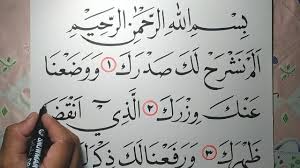 بِسْمِ اللهِ الرَّحْمٰنِ الرَّحِيْمِ
اَلَمْ نَشْرَحْ لَكَ صَدْرَكَ ١ وَوَضَعْنَا
عَنْكَ وِزْرَكَ ٢ الَّذِيْٓ اَنْقَضَ
ظَهْرَكَ ٣ وَرَفَعْنَا لَكَ ذِكْرَكَ